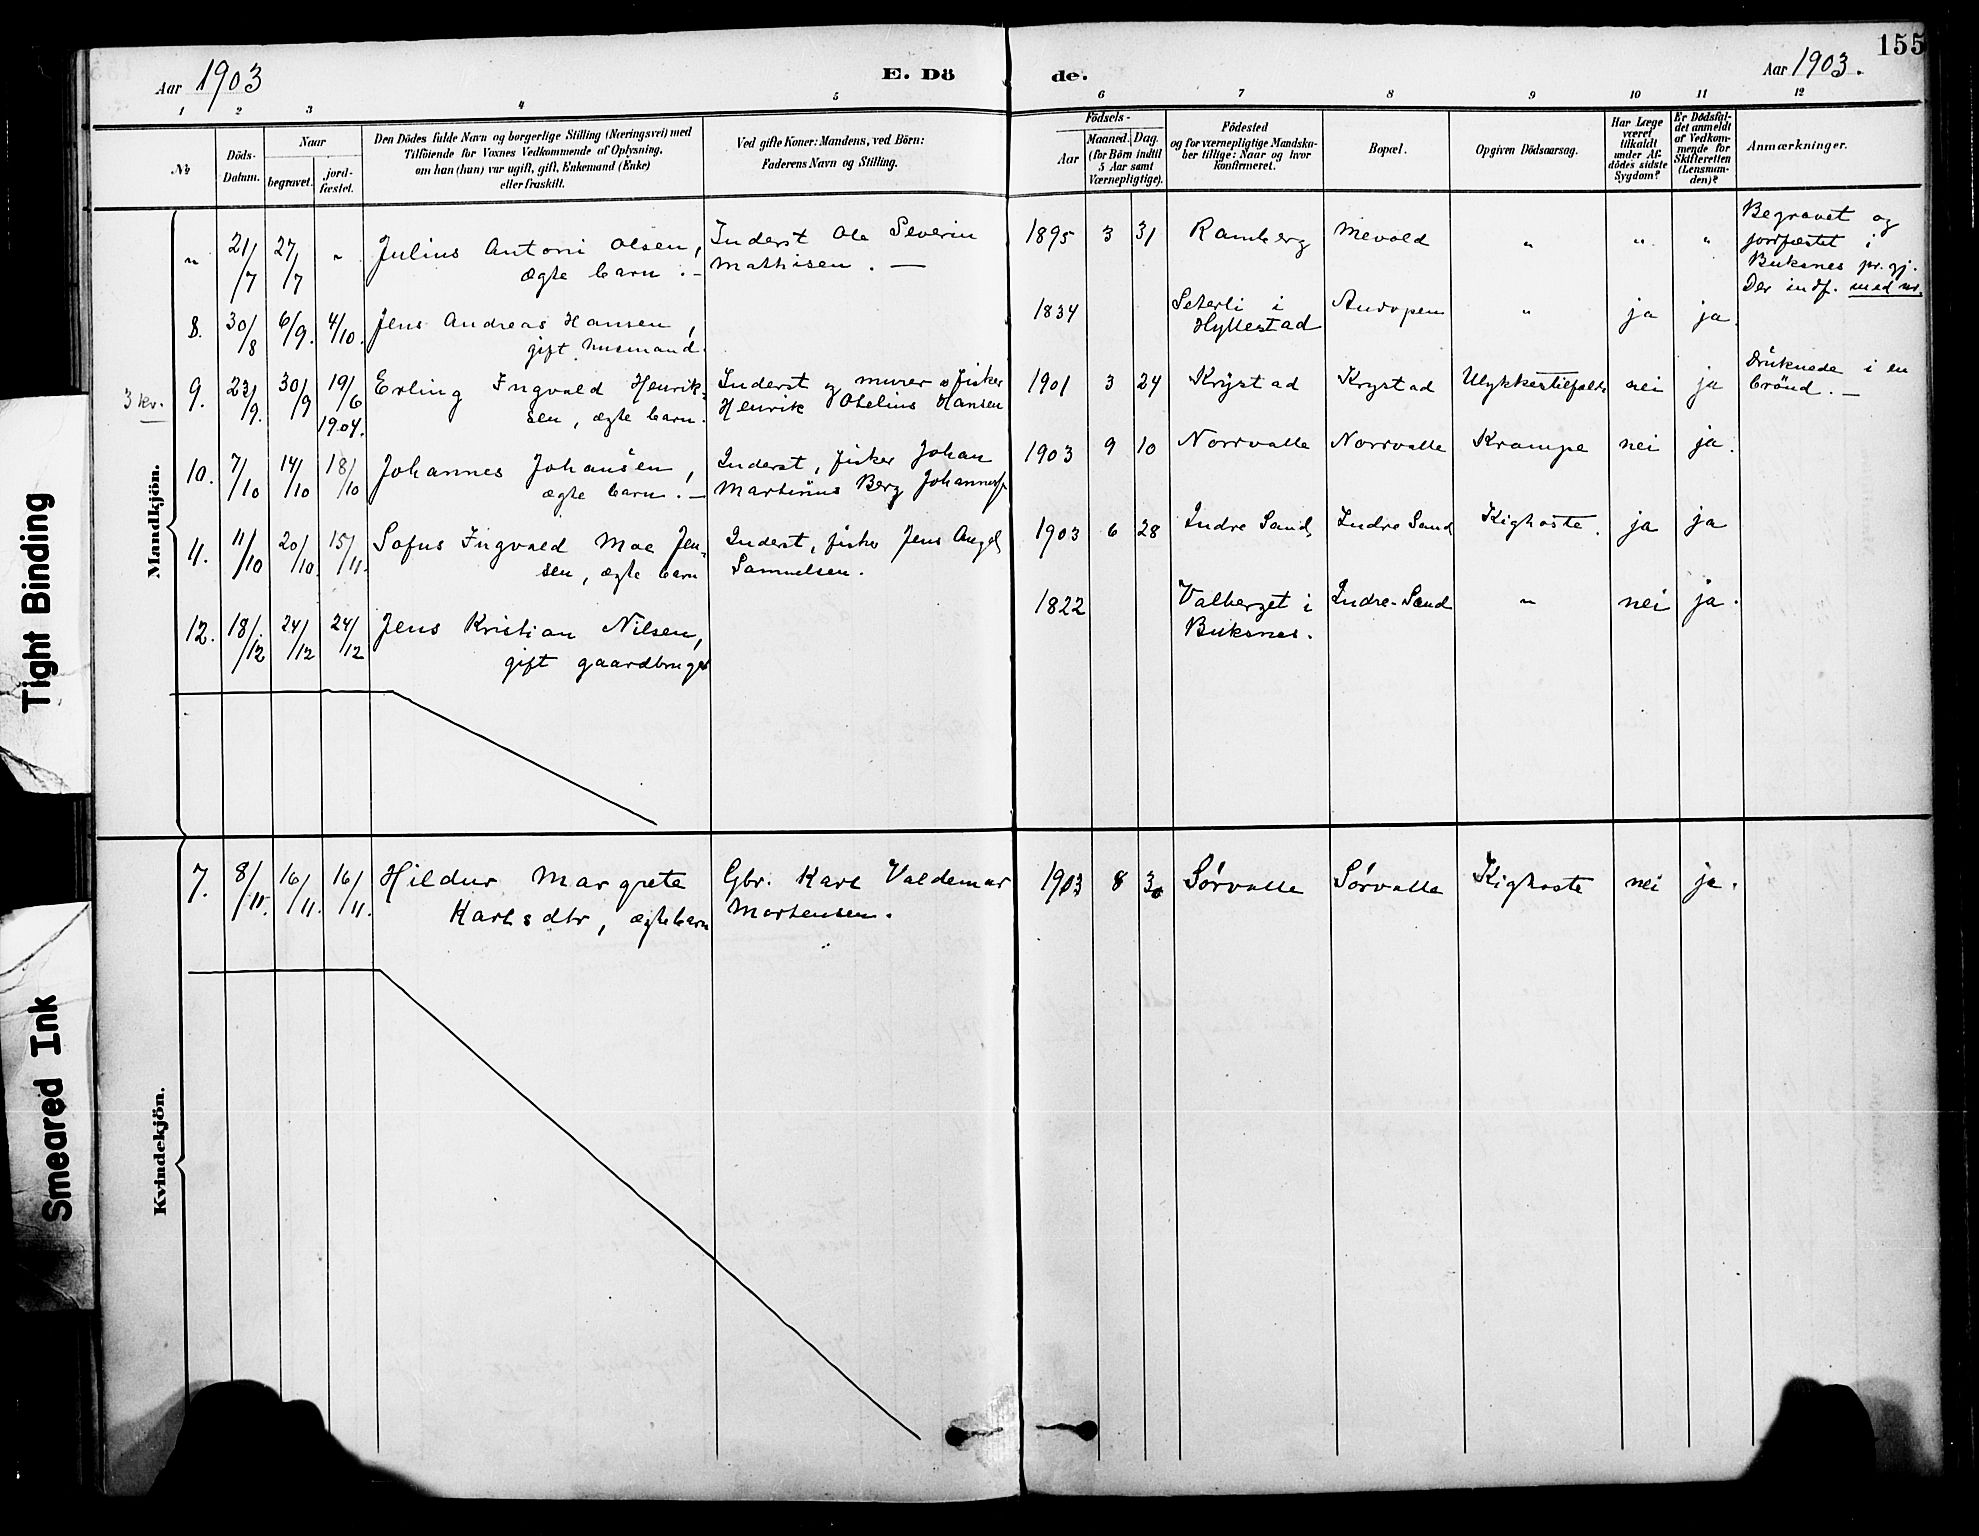 155
Aar 1903
E. Dö
de.
Aar 1903.
1 2 3 4 5 6 7 8 9 10 11 12
Nr
Döds-
Datum.
Naar
begravet.
jord-
fæstet.
Den Dödes fulde Navn og borgerlige Stilling (Næringsvei) med
Tilföiende for Voxnes Vedkommende af Oplysning,
om han (hun) var ugift, gift, Enkemand (Enke)
eller fraskilt.
Ved gifte Koner: Mandens, ved Börn:
Faderens Navn og Stilling.
Födsels-
Aar
Maaned. Dag.
(for Börn indtil
5 Aar samt
Værnepligtige).
Födested
og for værnepligtige Mandsku-
ber tillige: Naar og hvor
Konfirmeret.
Bopæl.
Opgiven Dödsaarsag.
Har Læge
været
tilkaldt
under Af-
dödes sidste
Sygdom?
Er Dödsfal-
det anmeldt
af Vedkom-
mende for
Skifteretten
(Lensman-
den)?
Anmærkninger.
Mandkjön.
" 21/7 27/7 " Julius Antoni Olsen,
ægte barn. —
Inderst Ole Severin
Mathisen. —
1895 3 31 Ramberg Mevold " " "
Begravet og
jordfæstet i
Buksnes pr. gj.
Der indf. med nr.
8. 30/8 6/9. 4/10. Jens Andreas Hansen,
gift husmand.
1834 Seterli i
Hyllestad
Andopen " ja ja.
3 kv.
9. 23/9. 30/9 19/6
1904.
Erling Ingvald Henrik-
sen, ægte barn.
Inderst og murer o fisker
Henrik Otelius Hansen
1901 3 24 Krystad Krystad Ulykkestilfælde nei ja
Druknede i en
brönd. —
10. 7/10 14/10 18/10 Johannes Johansen,
ægte barn. —
Inderst, fisker Johan
Martinus Berg Johannes
1903 9 10 Norvalle Norvalle Krampe nei ja.
11. 11/10 20/10. 15/11. Sofus Ingvald Moe Jen-
sen, ægte barn
Inderst, fisker Jens Angel
Samuelsen.
1903 6 28 Indre Sand Indre Sand Kighoste. ja ja
12. 18/12 24/12 24/12 Jens Kristian Nilsen,
gift gaardbruger
1822 Valberget i
Buksnes.
Indre-Sand " nei ja.
Kvindekjön.
7. 8/11. 16/11. 16/11. Hildur Margrete
Karlsdtr, ægte barn
Gbr. Karl Valdemar
Mortensen.
1903 8 30 Sörvalle Sörvalle Kighoste nei ja.
Tight Binding
Smeared Ink